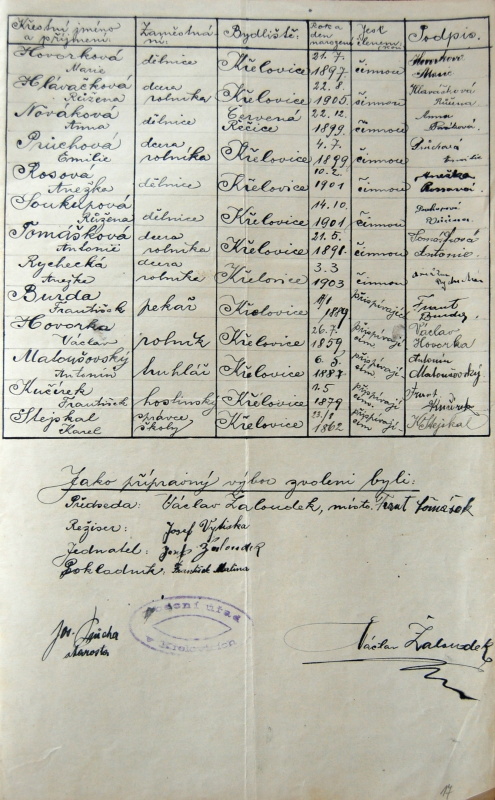 Křestní jméno a příjmení. Zaměstnání. Bydliště: Rok a den narození Jest členem Podpis.
Hovorková Marie dělnice Křelovice 21.7. 1897. činnou Hovorková Marie
Hlaváčková Růžena dcera rolníka Křelovice 22.8. 1905. činnou Hlaváčková Růžena
Nováková Anna dělnice Červená Řečice 22.12. 1899. činnou Anna
Průchová Emilie dcera rolníka Křelovice 4.7. 1899 činnou Průchová Emilie
Rosová Anežka dělnice Křelovice 10.2. 1901 činnou Anežka Rosová
Soukupová Růžena dělnice Křelovice 14.10. 1901 činnou Soukupová Růžena
Tomášková Antonie dcera rolníka Křelovice 21.5. 1898. činnou Tomášková Antonie
Rychecká Anežka dcera rolníka Křelovice 3.3 1903 činnou
Burda František pekař Křelovice 1889 přispívající Frant Burda
Hovorka Václav rolník Křelovice 26.7. 1859 přispívající Václav Hovorka
Matoušovský Antonín truhlář Křelovice 6.5. 1887. přispívající Antonín Matoušovský
Kučírek František hostinský Křelovice 1.5 1879 přispívající Frant. Kučírek
Stejskal Karel správce školy Křelovice 23/8 1862 přispívající K Stejskal
Jako přípravný výbor zvoleni byli:
Předseda: Václav Žaloudek, místo. Frant Tomášek
Režiser: Josef Vytiska
Jednatel: Josef Žaloudek
Pokladník: František Malina
Obecní úřad
v Křelovicích
Jos. Průcha
starosta
Václav Žaloudek
17